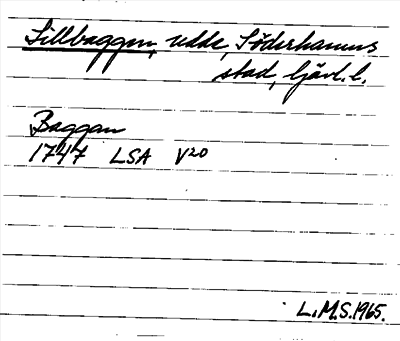 Lillbaggen, udde, Söderhamns
stad, Gävl. l.
Baggan
1747 LSA V20
L.M.S. 1965.